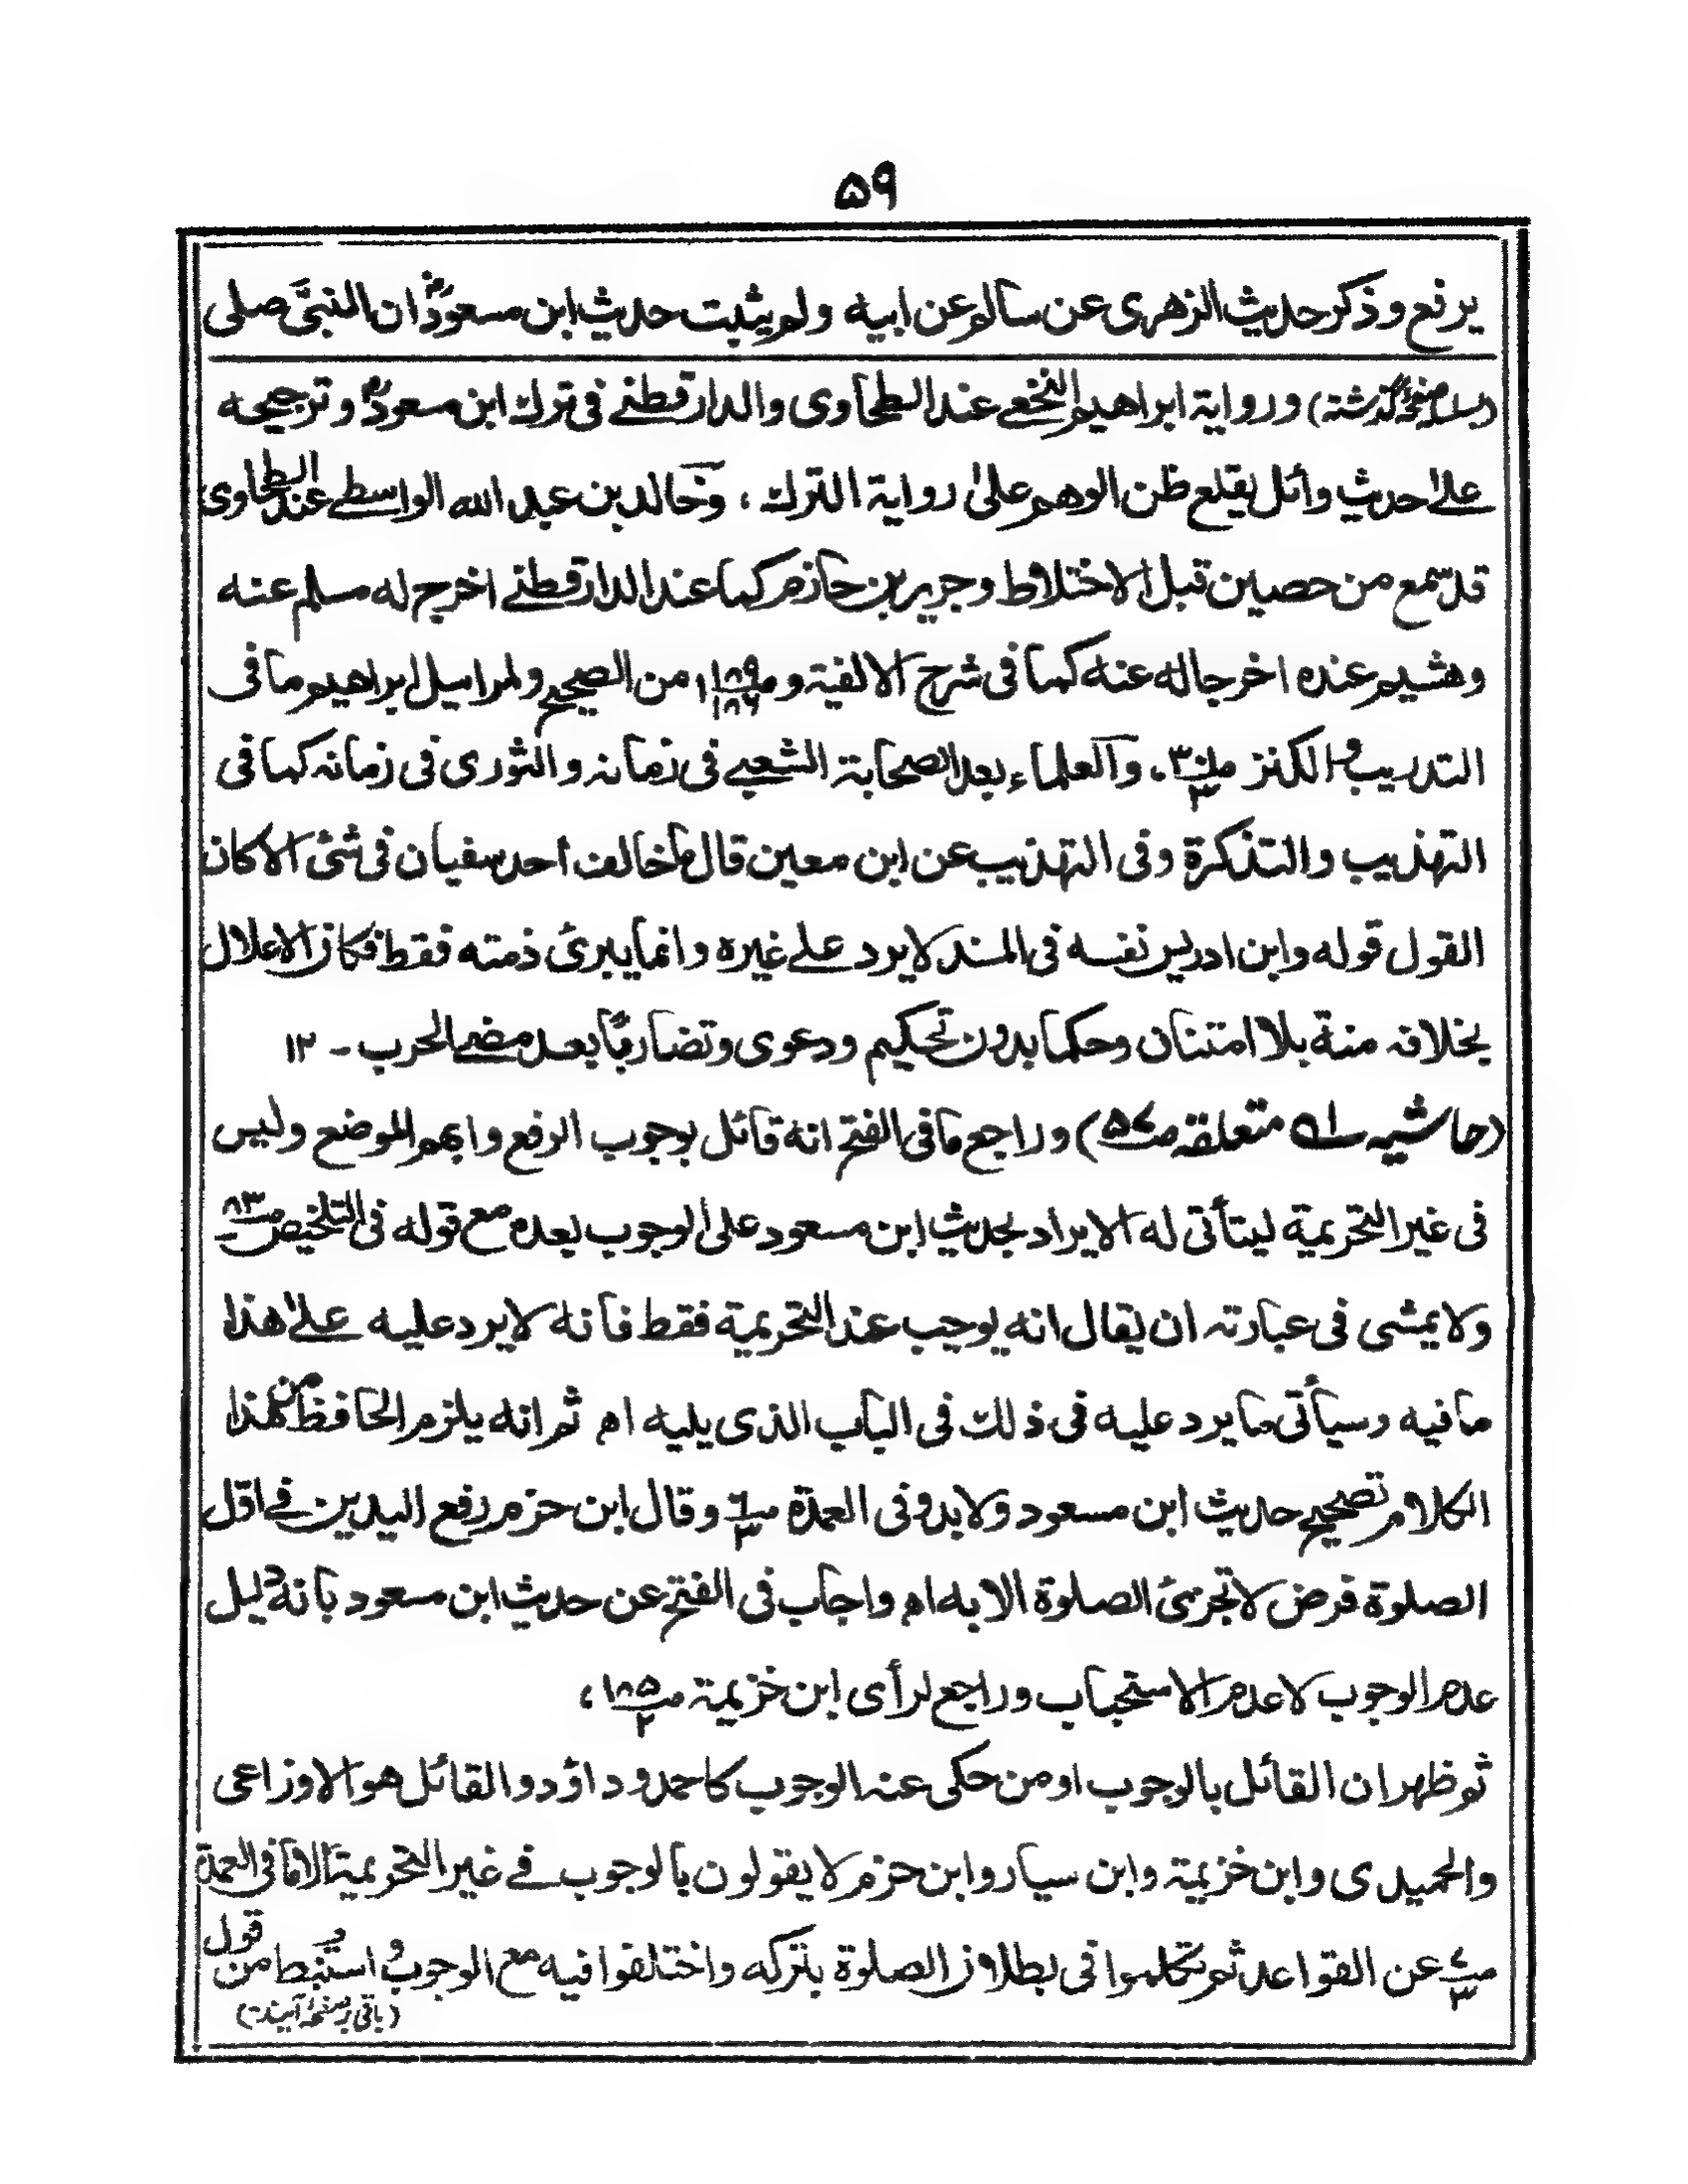 ۵۹
يرفع وذكر حديث الزهرى عن سالم عن ابيه ولم يثبت حديث ابن مسعودؓ ان النبىّ صلى
(بسلسلہ صفحہ گذشتہ) ورواية ابراهيم النخعے عند الطحاوى والدارقطنے فى ترك ابن مسعودؓ وترجيحه
علےٰ حديث وائل يقلع ظن الوهم علىٰ رواية الترك، وخالد بن عبد الله الواسطے عند الطحاوى
قد سمع من حصين قبل الاختلاط وجرير بن حازم كما عند الدارقطنے اخرج له مسلم عنه
وهشيم عنده اخرجا له عنه كما فى شرح الالفية و من الصحيح ولمراسيل ابراهيم ما فى
التدريب والكنز ، والعلماء بعد الصحابة الشعبے فى زمانه والثورى فى زمانه كما فى
التهذيب والتذكرة وفى التهذيب عن ابن معين قال ما خالف أحد سفيان فى شئ الا كان
القول قوله وابن ادريس نفسه فى المسند لا يرد علے غيره وانما يبرئ ذمته فقط فكان الاعلال
بخلافه منة بلا امتنان وحكما بدون تحكيم ودعوى وتضاربًا بعد مضے الحرب - ١٢
(حاشیہ ؁۱ متعلقہ ص۵۷) وراجع ما فى الفتح انه قائل بوجوب الرفع وابهم الموضع وليس
فى غير التحريمة ليتأتى له الايراد بحديث ابن مسعود على الوجوب بعده مع قوله فى التلخيص ص۸۳
ولا يمشى فى عبارته ان يقال انه يوجب عند التحريمة فقط فانه لا يرد عليه علےٰ هذا
ما فيه وسيأتى ما يرد عليه فى ذلك فى الباب الذى يليه اه ثم انه يلزم الحافظ من هذا
الكلام تصحيح حديث ابن مسعود ولا بد وفى العمدة ص٦/٣ وقال ابن حزم رفع اليدين فے اول
الصلوة فرض لا تجزئ الصلوة الا به اه واجاب فى الفتح عن حديث ابن مسعود بانه دليل
عدم الوجوب لا عدم الاستحباب وراجع لرأى ابن خزيمة ص۱۸۵/۲،
ثم ظهر ان القائل بالوجوب او من حكى عنه الوجوب كاحمد وداؤد والقائل هو الاوزاعى
والحميدى وابن خزيمة وابن سيار وابن حزم لا يقولون بالوجوب فے غير التحريمة الا ما فى العمدة
ص٧/٣ عن القواعد ثم تكلموا فى بطلان الصلوة بتركه واختلفوا فيه مع الوجوب واستنبط من قول
(باقی بر صفحہ آیندہ)